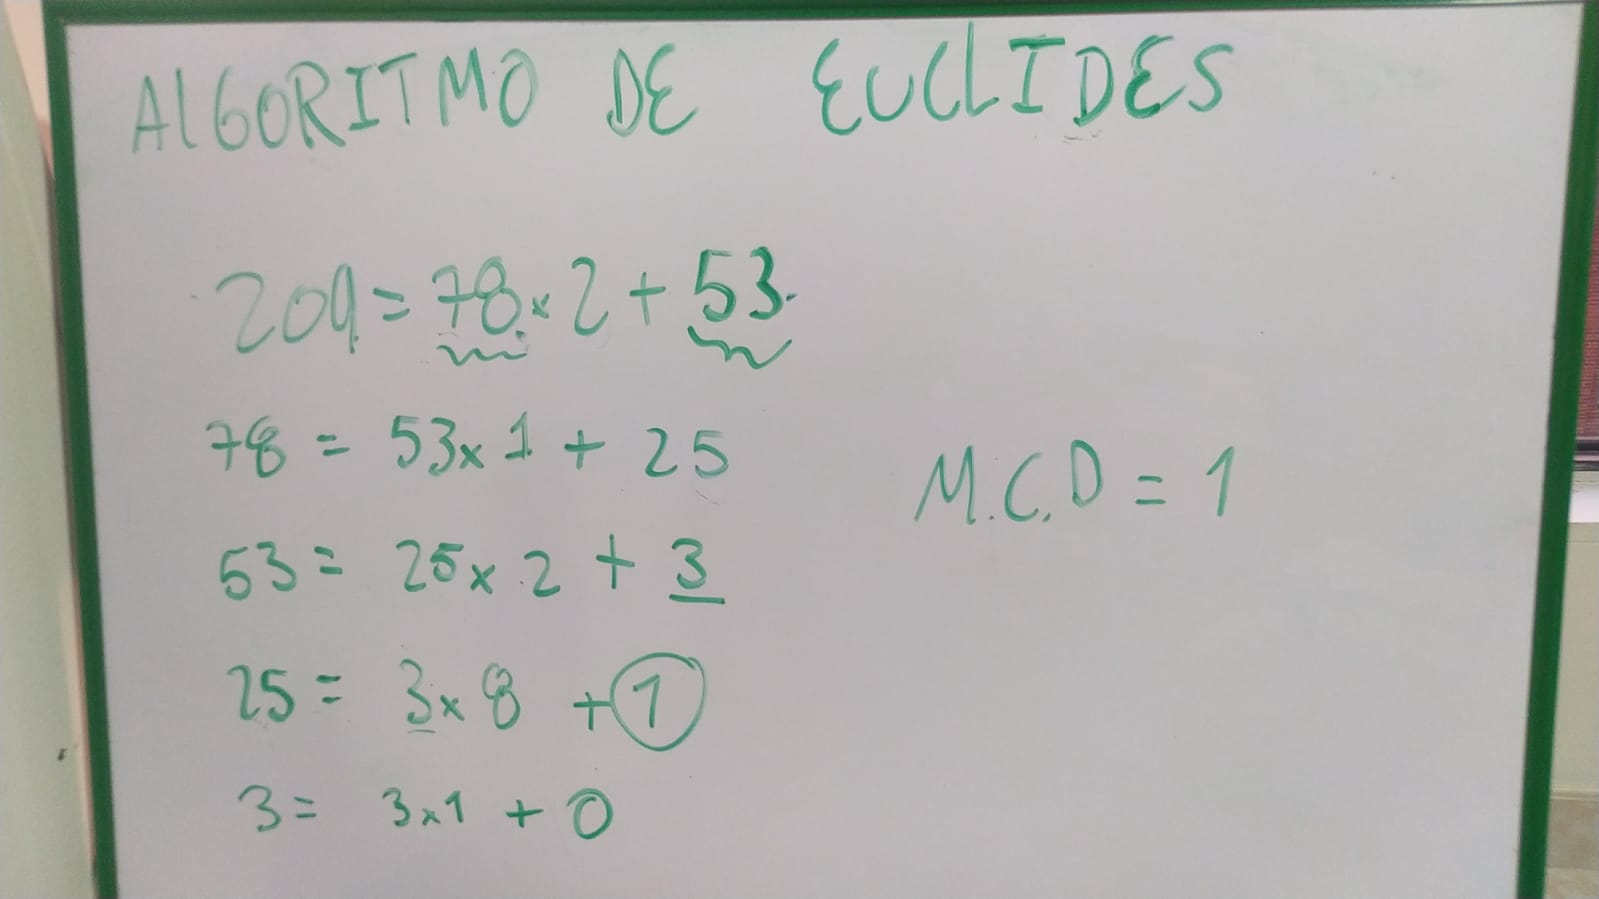 ALGORITMO DE EUCLIDES
209 = 78 x 2 + 53
78 = 53 x 1 + 25
53 = 25 x 2 + 3
25 = 3 x 8 + 1
3 = 3 x 1 + 0
M.C.D = 1